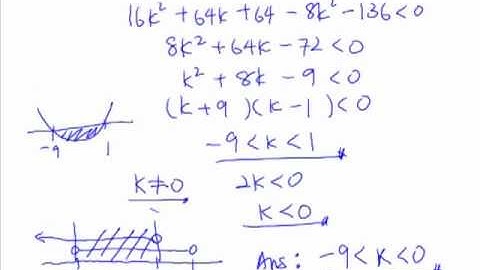 16k² + 64k + 64 - 8k² - 136 < 0
8k² + 64k - 72 < 0
k² + 8k - 9 < 0
(k + 9)(k - 1) < 0
-9 1
-9 < k < 1
k ≠ 0 2k < 0
k < 0
Ans: -9 < k < 0